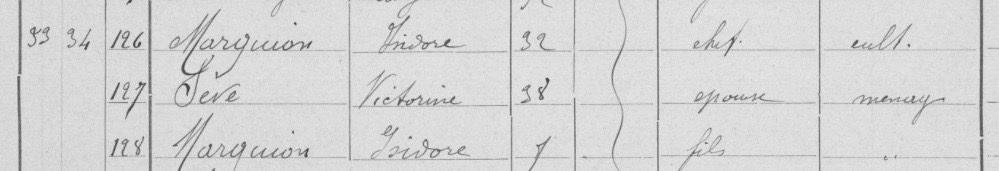 33 34 126 Marquion Isidore 32 chef. cult.
127 Sève Victorine 38 epouse menag
128 Marquion Isidore 7 fils "